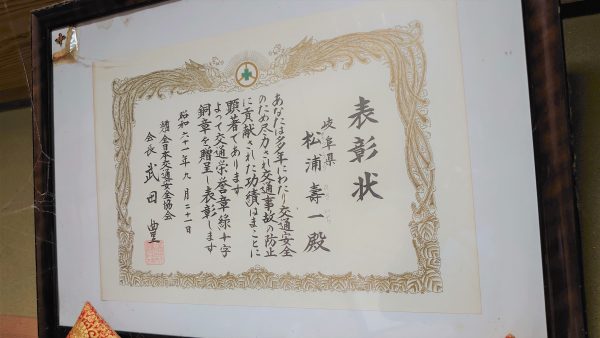 表彰状
岐阜県
松浦壽一殿
あなたは多年にわたり交通安全
のため尽力され交通事故の防止
に貢献された功績はまことに
顕著であります
よって交通栄誉章緑十字
銅章を贈呈し表彰します
昭和六十一年九月二十一日
財団法人全日本交通安全協会
会長 武田豊